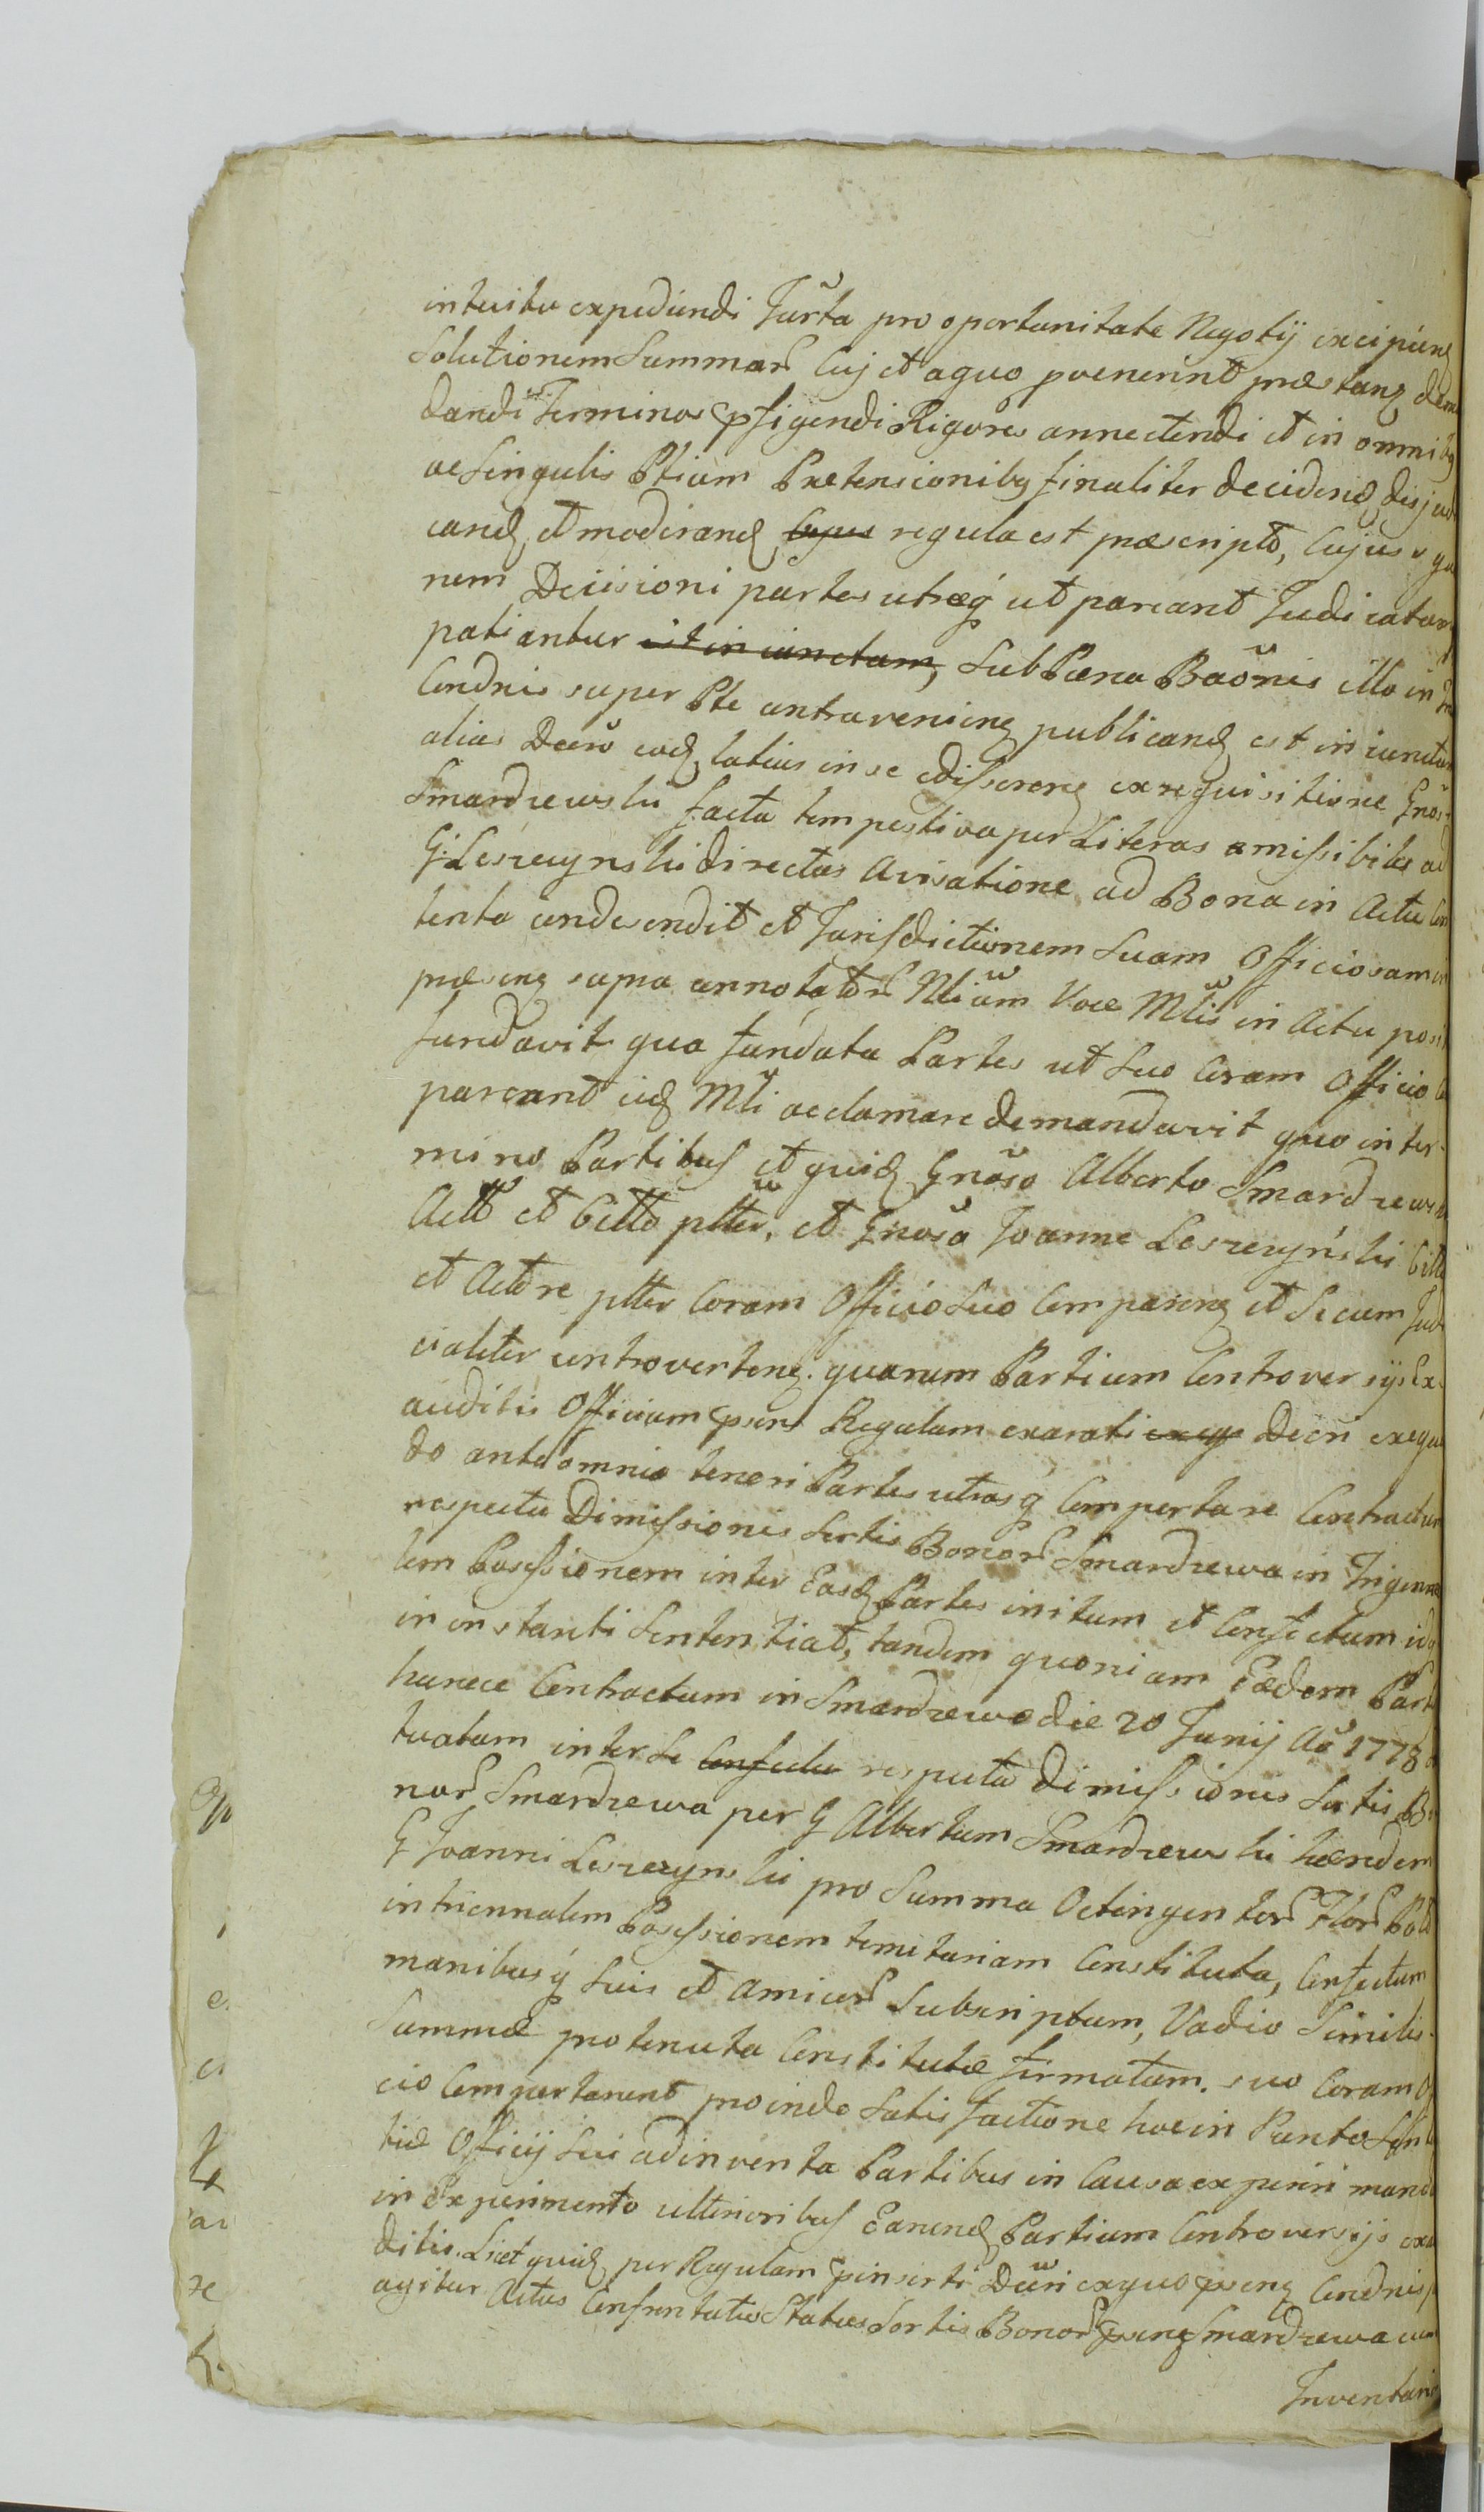 intuitu expediendi Jurta pro oportunitate Negotij excipiend
Solutionem Summar cuj et a quo provenerint præstanz dem
dandi Terminos pfigendi Rigores annectendi et in omnibq
ac Singulis Ptium Prætensionibq finaliter decidend disjudi
cand, et moderand, cujus regula est præscripto, Cujus
nem Decisioni partes utræq ut pareant Judicatum
patiantur est in iunctum, Sub Pæna Baonis illo in
Condnis super Pte contraveniens publicand est in iunctum
alias Decro eod latius in se edisseren ex requisitione Gnosi
Smardzewski facta tempestiva per Literas amissibiles ad
G. Leszczynski directas Avisatione ad Bona in Actu Con
tenta condescendit et Jurisdictionem Suam Officiosam in
præsenz supra annotator Nlium Voce Mlis in Actu posit
fundavit qua fundata Partes ut Suo Coram Officio
pareant eid Mli acclamare demandavit quo in ter-
mino Partibus et quid Gnoso Alberto Smardzewski
Actt et Citto pltter, et Gnoso Joanne Leszczyński Citto
et Actore pltter Coram Officio Suo Comparenz et Secum Judi
cialiter controvertenz. quarum Partium Controversijs Ex
auditis Officium psens Regulam exarati exeq Decri exequen
do ante omnia teneri Partes utrasq Comportare Contractum
respectu Dimissionis Sortis Bonor Smardzewa in Trienna
lem Possessionem inter Easd Partes initum et Confectum idq
in instanti Sententiat, tandem quoniam Eædem Partes
huncce Contractum in Smardzewo die 20 Junij Ao 1778
tuatum inter Se Confectu respectu dimissionis Sortis Bo
nor Smardzewa per G Albertum Smardzewski hæredem
G Joanni Leszczynski pro Summa Octingentor Flor Pol
in triennalem Possessionem tenutariam Constituta, Confectum
manibusq Suis et Amicor Subscriptum, Vadio Similis
Summæ pro tenuta Constitutæ firmatum. suo Coram Offi
cio Comportarunt proinde Satisfactione hocin Puncto Senten
tiæ Officij Sui adinventa Partibus in Causa experiri mand
in Experimento ulterioribus Earund Partium Controversijs exau
ditis. Licet quid per Regulam pinserti Decri ex quo psenz Condnis
agitur Actus Confrontatio Status Sortis Bonor psenz Smardzewa cum
Inventario